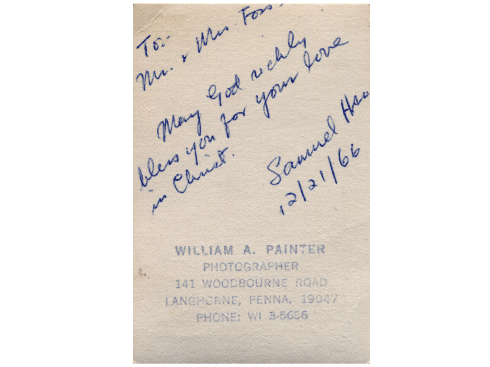 To:-
Mr. & Mrs. Foss.
May God richly
bless you for your love
in Christ.
Samuel Hsu
12/21/66
WILLIAM A. PAINTER
PHOTOGRAPHER
141 WOODBOURNE ROAD
LANGHORNE, PENNA. 19047
PHONE: WI 3-5656